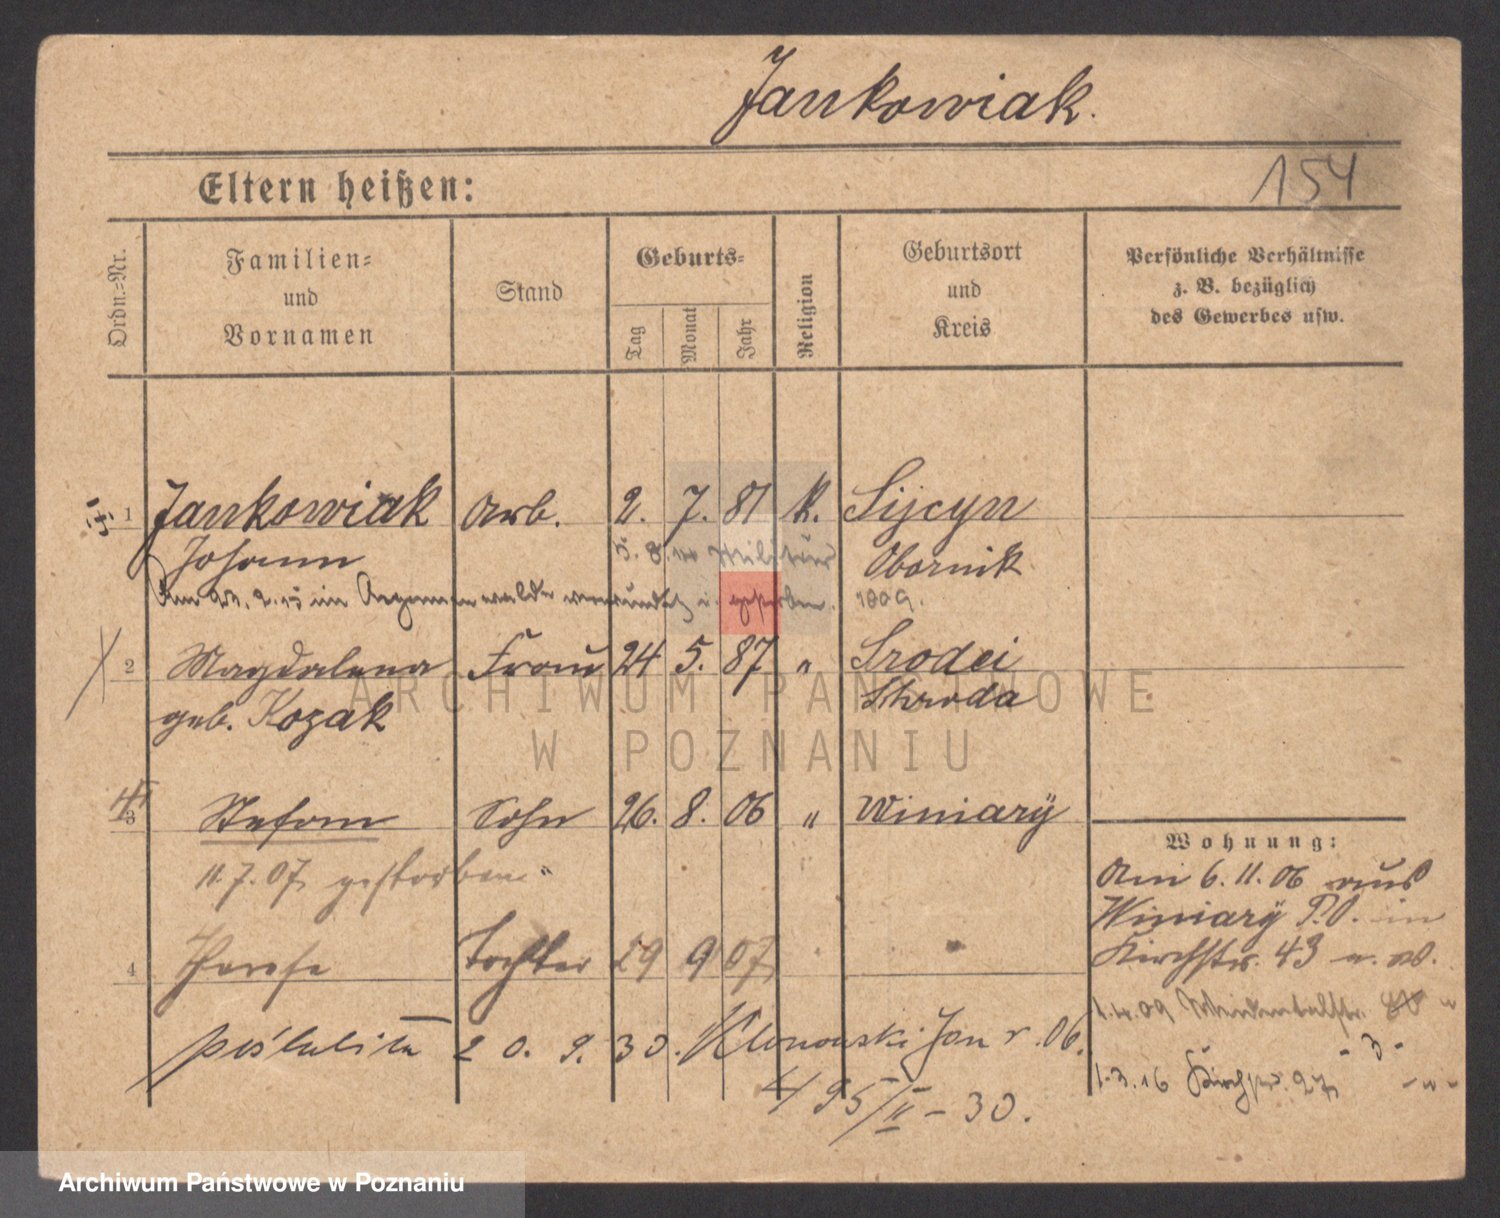 Jankowiak.
154
Eltern heißen:
Ordn.-Nr.
Familien-
und
Vornamen
Stand
Geburts-
Tag
Monat
Jahr
Religion
Geburtsort
und
Kreis
Persönliche Verhältnisse
z. B. bezüglich
des Gewerbes usw.
1 Jankowiak Arb. 2. 7. 81 k. Sijcyn
Johann 5. 8. 14 Militär Obornik
Am 27. 2. 15 im Argonnenwalde verwundet u. gestorben. 1809.
2 Magdalena Frau 24 5. 87 " Srodei
geb. Kozak Schroda
ARCHIWUM PAŃSTWOWE
W POZNANIU
3 Stefan Sohn 26. 8. 06 " Winiary
11.7.07 gestorben
Wohnung:
Am 6. 11. 06 aus
Winiary P.O. in
Kirchstr. 43
4 Therese Tochter 29 9 07
1.4.09
poślubiła 20. 9. 30. Klonowski Jan r. 06.
- 3 -
1.3.16 Kirchstr. 27
495/II - 30.
Archiwum Państwowe w Poznaniu